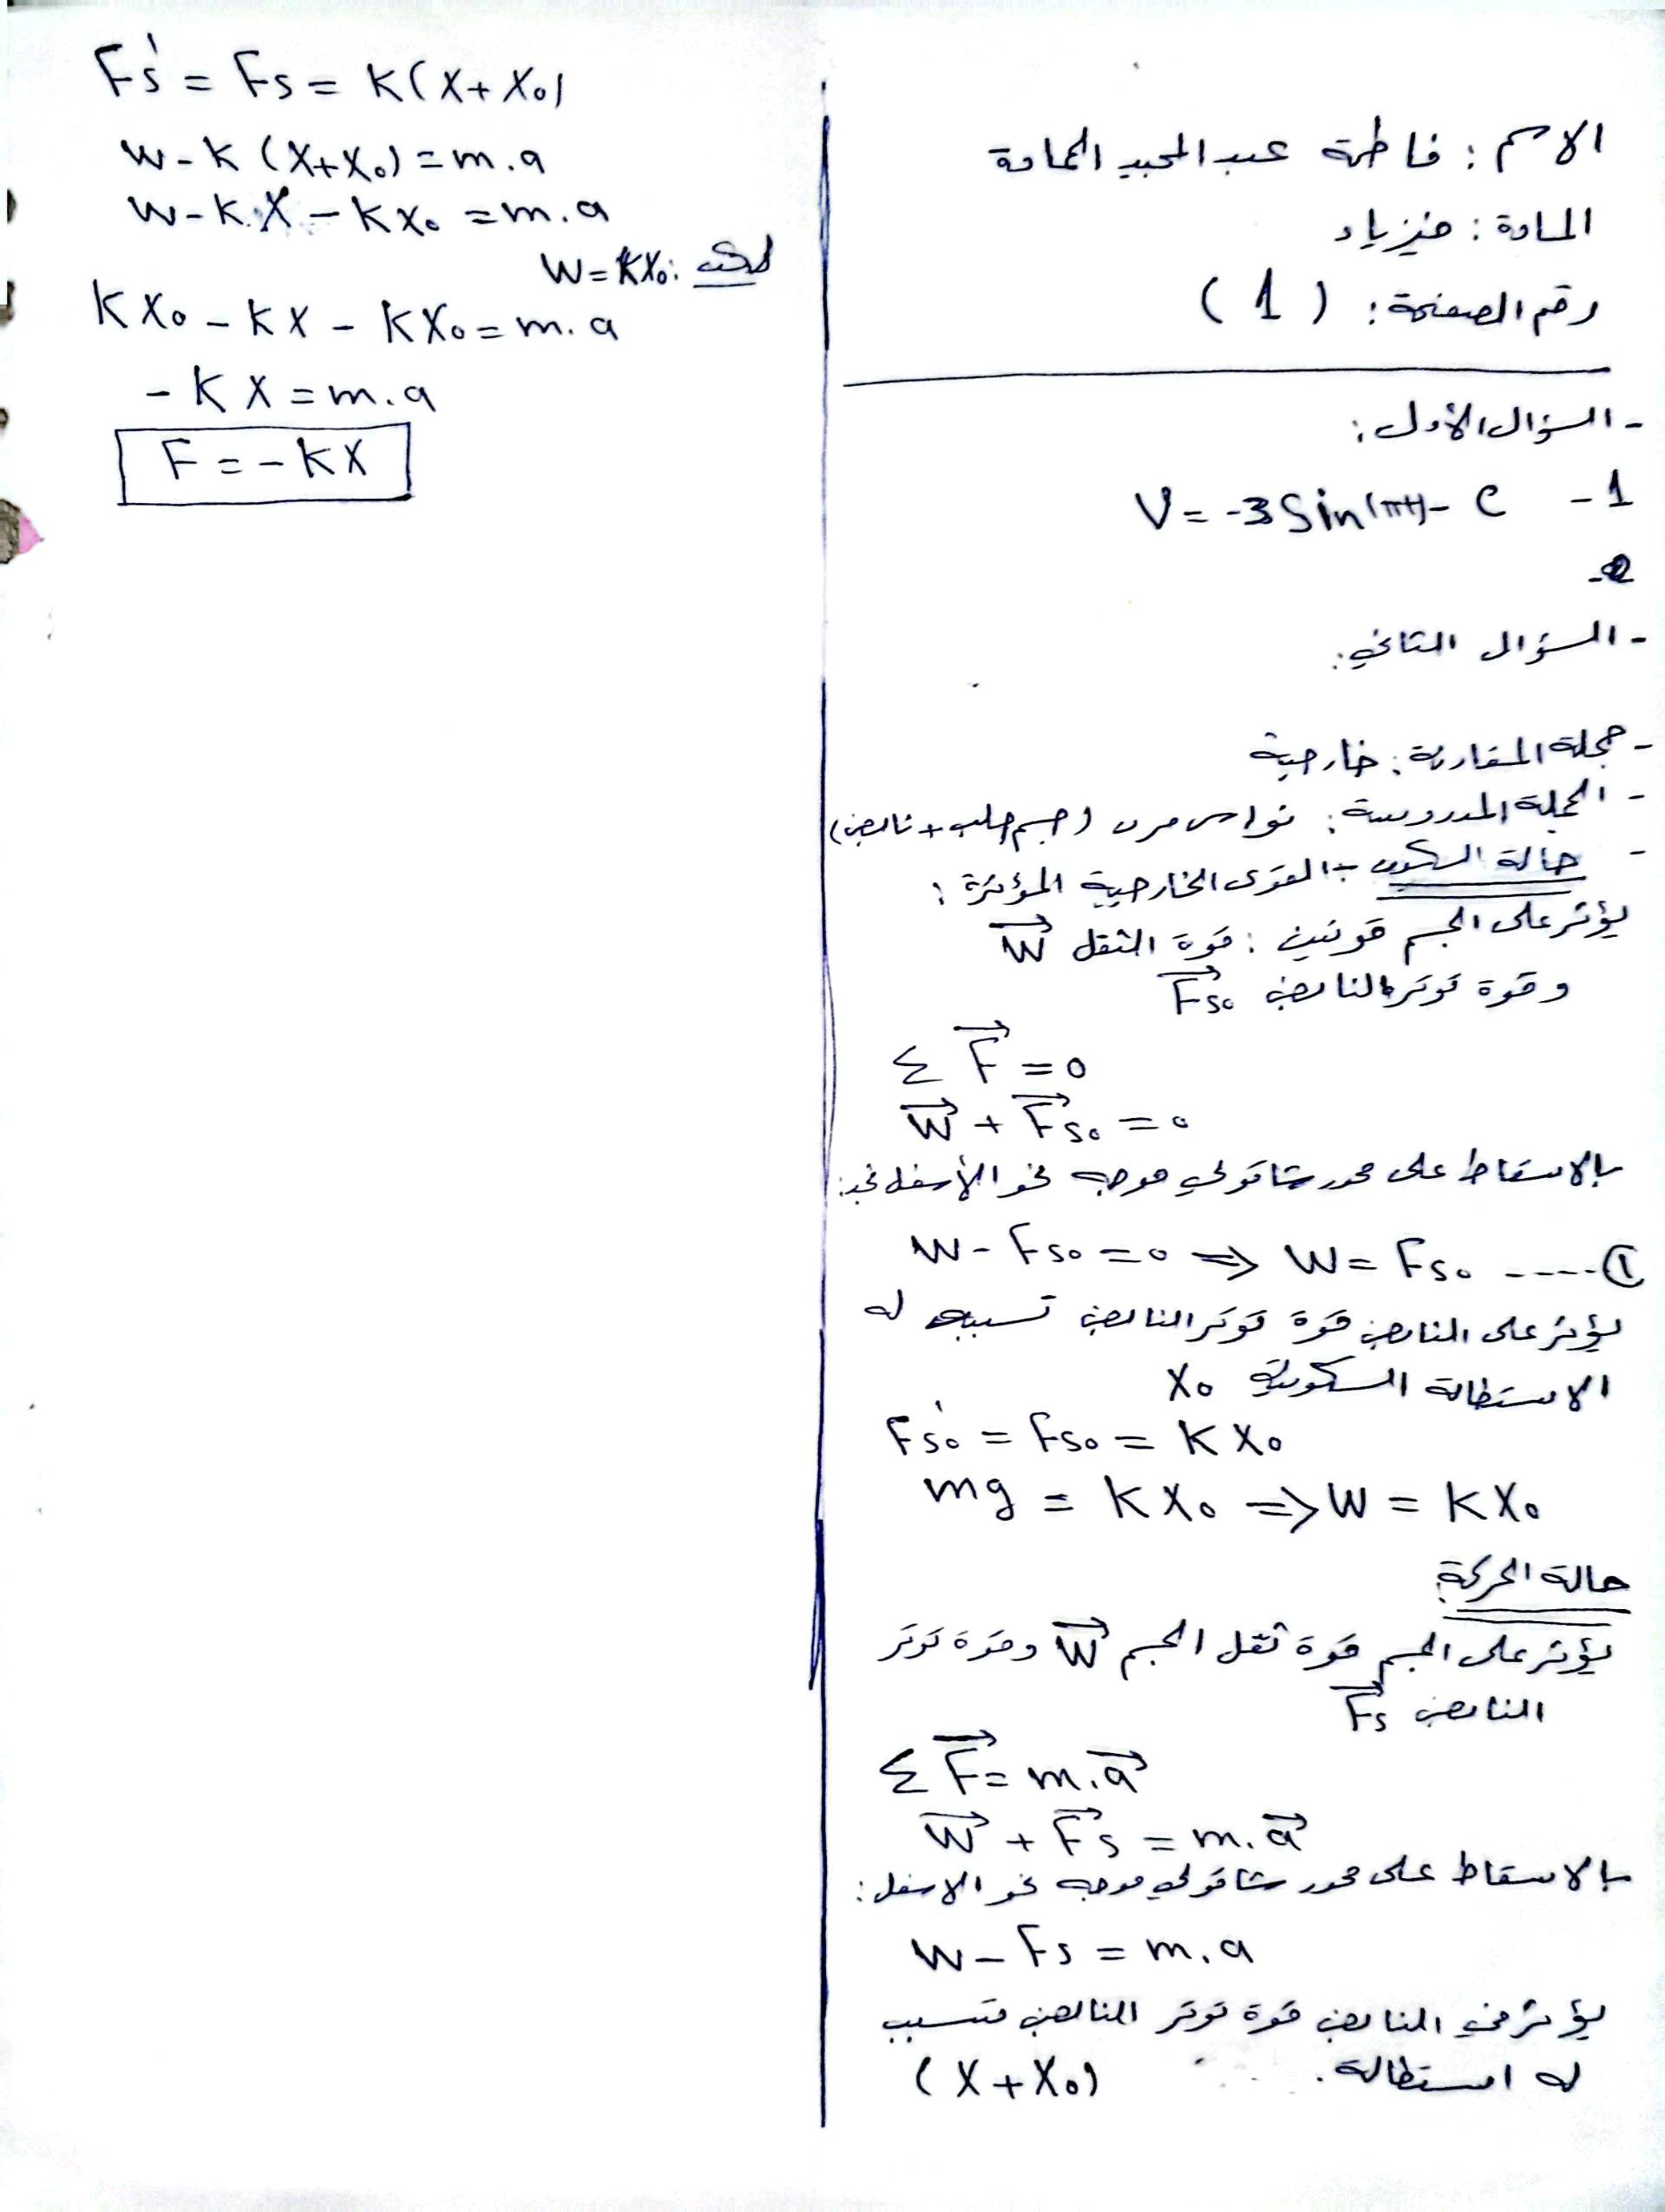 الاسم : فاطمة عبد المجيد الحمادة
المادة : فيزياء
رقم الصفحة : ( 1 )
- السؤال الأول :
1 - C - V = -3 Sin(πt)
2-
- السؤال الثاني :
- جملة المقارنة : خارجية
- الجملة المدروسة : نواس مرن (جسم صلب + نابض)
- حالة السكون : القوى الخارجية المؤثرة :
يؤثر على الجسم قوتين : قوة الثقل W⃗
و قوة توتر النابض F⃗s₀
Σ F⃗ = 0
W⃗ + F⃗s₀ = 0
بالاسقاط على محور شاقولي موجه نحو الأسفل نجد :
W - Fs₀ = 0 ⇒ W = Fs₀ ----- ①
يؤثر على النابض قوة توتر النابض تسبب له
الاستطالة السكونية X₀
Fs₀' = Fs₀ = K X₀
mg = K X₀ ⇒ W = K X₀
حالة الحركة :
يؤثر على الجسم قوة ثقل الجسم W⃗ وقوة توتر
النابض F⃗s
Σ F⃗ = m.a⃗
W⃗ + F⃗s = m.a⃗
بالاسقاط على محور شاقولي موجه نحو الاسفل :
W - Fs = m.a
يؤثر في النابض قوة توتر النابض فتسبب
له استطالة . (X + X₀)
Fs' = Fs = K(X + X₀)
W - K (X + X₀) = m.a
W - K.X - K X₀ = m.a
لكن : W = KX₀
K X₀ - K X - K X₀ = m.a
- K X = m.a
F = - K X